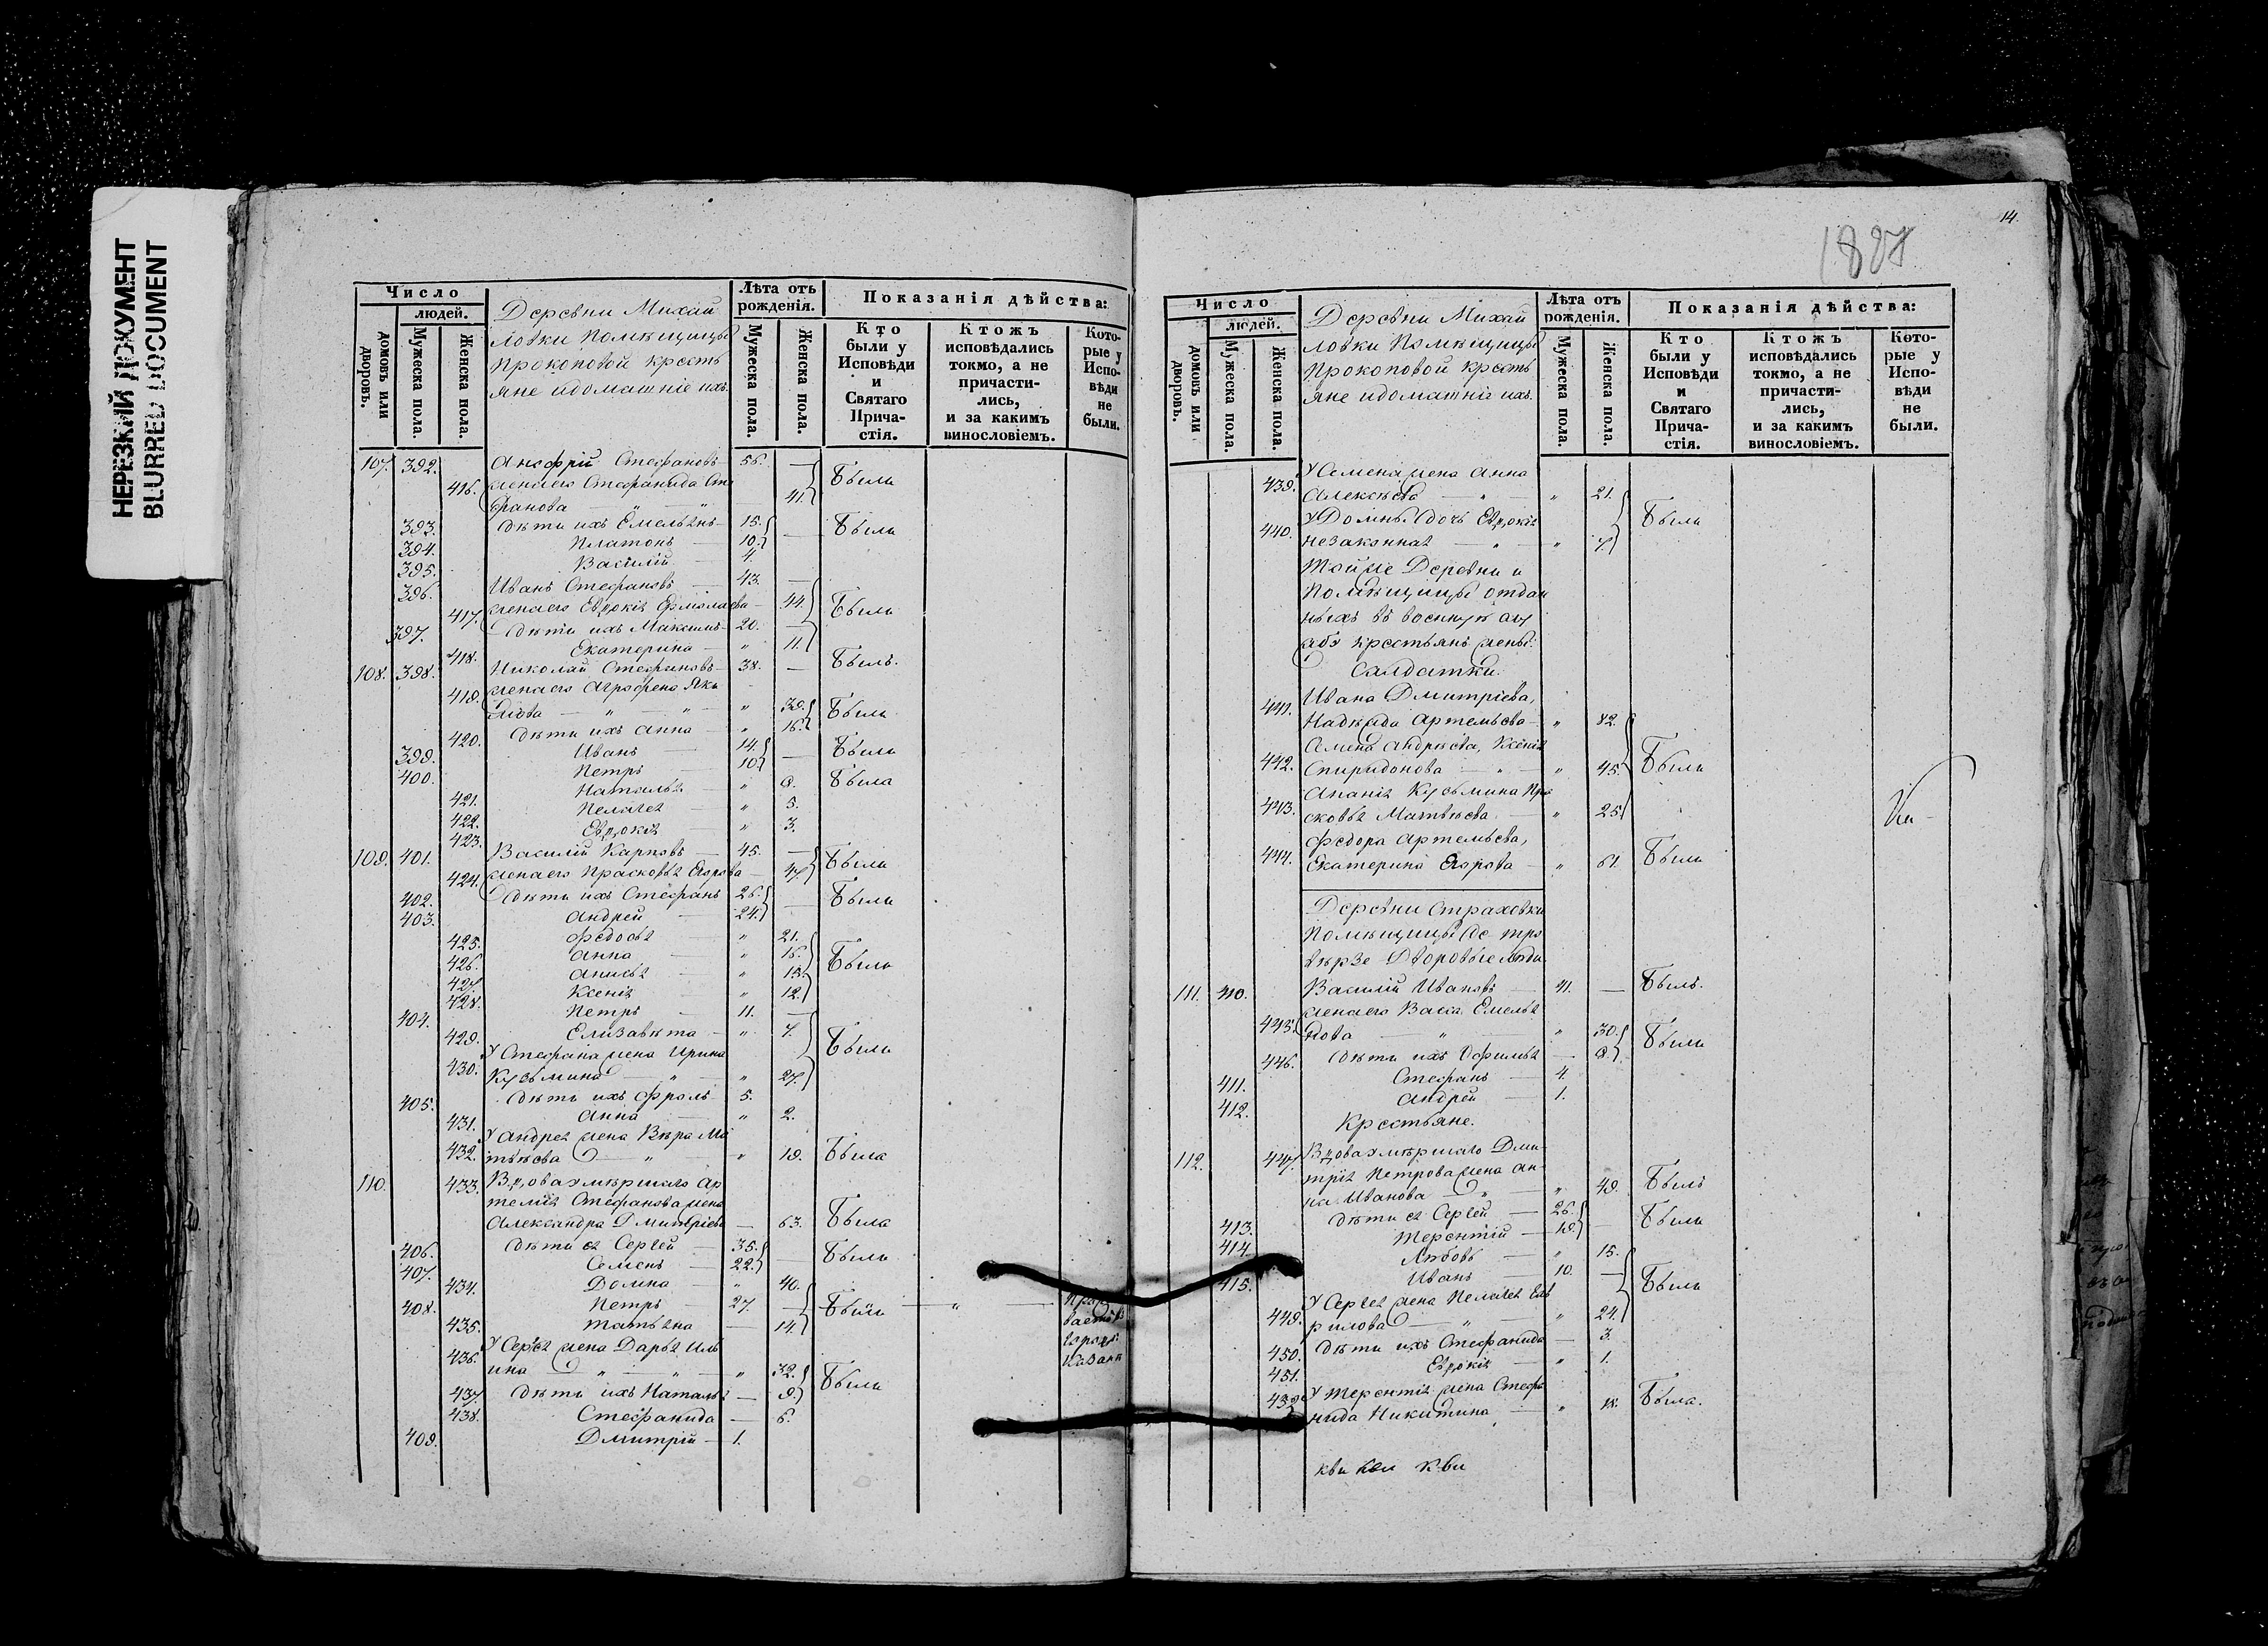 НЕРЕЗКИЙ ДОКУМЕНТ
BLURRED DOCUMENT
Число
людей.
домовъ или дворовъ.
Мужеска пола.
Женска пола.
Деревни Михай
ловки Помѣщицы
Прокоповой кресть
яне и домашніе ихъ.
Лѣта отъ рожденія.
Мужеска пола.
Женска пола.
Показанія дѣйства:
Кто были у Исповѣди и Святаго Причастія.
Ктожъ исповѣдались токмо, а не причастились, и за какимъ винословіемъ.
Которые у Исповѣди не были.
107. 392. Анофрій Стефановъ 56. —
416. жена его Стефанида
41. Были
393. Дѣти ихъ Емельянъ 15.
394. Платонъ 10. — Были
395. Василій 4.
396. Иванъ Стефановъ 43. —
417. жена его Евдокія Ермолаева 44. Были
397. Дѣти ихъ Максимъ 20. —
418. Екатерина " 11.
108. 398. Николай Стефановъ 38. — Былъ.
419. жена его Агрофена Яко
влова " " " 39. Были
420. Дѣти ихъ Анна " 16.
399. Иванъ 14. — Были
400. Петръ 10.
421. Наталья " 9. Была
422. Пелагея " 5.
423. Евдокія " 3.
109. 401. Василій Карповъ 45. —
424. жена его Прасковья Егорова 47. Были
402. Дѣти ихъ Стефанъ 26. — Были
403. Андрей 24.
425. Федосья " 21.
426. Анна " 16. Были
427. Анисья "
428. Ксенія " 12.
404. Петръ 11. —
429. Елизавѣта " 7. Были
430. У Стефана жена Ирина
Кузьмина " " 27.
405. Дѣти ихъ Фролъ 5.
431. Анна " 2.
432. У Андрея жена Вѣра Ма
твѣева " " 19. Была
110. 433. Вдова умершаго Ар
темія Стефанова жена
Александра Дмитріева — 63. Была
406. Дѣти ея Сергей 35. — Были
407. Семенъ 22.
434. Домна " 40.
408. Петръ 27. — Были — " —
435. Татьяна — 14.
436. У Сергея жена Дарья Иль
ина " " " 32. Были
437. Дѣти ихъ Наталья — 9.
438. Стефанида — 6.
409. Дмитрій 1.
14.
Число
людей.
домовъ или дворовъ.
Мужеска пола.
Женска пола.
Деревни Михай
ловки Помѣщицы
Прокоповой кресть
яне и домашніе ихъ.
Лѣта отъ рожденія.
Мужеска пола.
Женска пола.
Показанія дѣйства:
Кто были у Исповѣди и Святаго Причастія.
Ктожъ исповѣдались токмо, а не причастились, и за какимъ винословіемъ.
Которые у Исповѣди не были.
439. У Семена жена Анна
Алексѣева — " — " 21.
440. У Домны дочь Евдокія Были
незаконная — " — " 7.
Той же Деревни и
Помѣщицы отдан
ныхъ въ военную слу
жбу крестьянъ жены:
Салдатки:
441. Ивана Дмитріева,
Надежда Артемьева " 82.
442. Андрѣева, Ксенія
Спиридонова — " — " 45. Были
443. Ананія Кузьмина Пра
сковья Матвѣева " 25.
444. Федора Артемьева,
Екатерина Егорова " 61. Были
Деревни Страховки
Помѣщицы
Дворовые люди
111. 410. Василій Ивановъ 41. — Былъ.
445. жена его Васса Емелья
нова " " 30. Были
446. Дѣти ихъ — 9.
411. Стефанъ 4.
412. Андрей 1.
Крестьяне.
112. 447. Вдова умершаго Дми
трія Петрова жена Ан
на Иванова " " 49. Былъ
413. Дѣти ея Сергей 26.
414. Терентій 19. — Были
Любовь " 15.
415. Иванъ 10. — Были
449. У Сергея жена Пелагея
рилова " " 24.
450. Дѣти ихъ Стефанида — 3.
451. Евдокія " 1.
452. У Терентія жена Стефа
нида Никитина " 18. Была.
кви кви кви